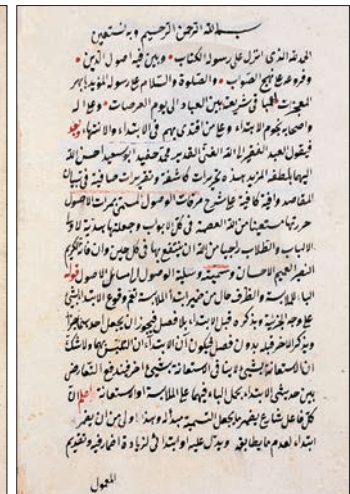 بسم الله الرحمن الرحيم وبه نستعين
الحمد لله الذى انزل على رسوله الكتاب وبين فيه اصول الدين
وفروعه على نهج الصواب والصلوة والسلام على رسوله المؤيد باهر
المعجزات شريعته بين العباد الى يوم العرصات وعلى اله
واصحابه نجوم الاهتداء وعلى من اقتدى بهم فى الابتداء والانتهاء وبعد
فيقول العبد الفقير الى الله الغنى القدير محمد حفيد ابو سعيد احسن الله
اليهما بلطفه المزيد هذه تحريرات كاشفة وتقريرات صافية فى بيان
المقاصد وافية كافية على شرح مرقات الوصول المسمى بمرات الاصول
حررتها مستعينا من الله العصمة فى كل الابواب وجعلتها هدية لاولى
الالباب والطلاب راجيا من الله ان ينتفع بها فى كل حين وان
العميم الاحسان وسميته وسيلة الوصول الى مسائل الاصول قوله
الباء للملابسة والظرف حال من ضمير ابتدأ الملابسة تعم وقوع الابتداء بالشئ
على وجه الجزئية وبذكره قبل الابتداء بلا فصل فيجوز ان يجعل احدهما جزأ
ويذكر الاخر قبله بدون فصل فيكون ان الابتداء ان التلبس بهما ولا شك
ان الاستعانة بشئ لا ينافى الاستعانة بشئ اخر فيندفع التعارض
بين حديثى الابتداء بحمل الباء فيهما على الملابسة او الاستعانة اعلم ان
كل فاعل شارع يضمر ما يجعل التسمية مبدأ له وهذا اولى من ان يضمر
ابتداء لعدم ما يطابقه ويدل عليه او ابتدائى لزيادة اضمار فيه وتقديم
المعمول